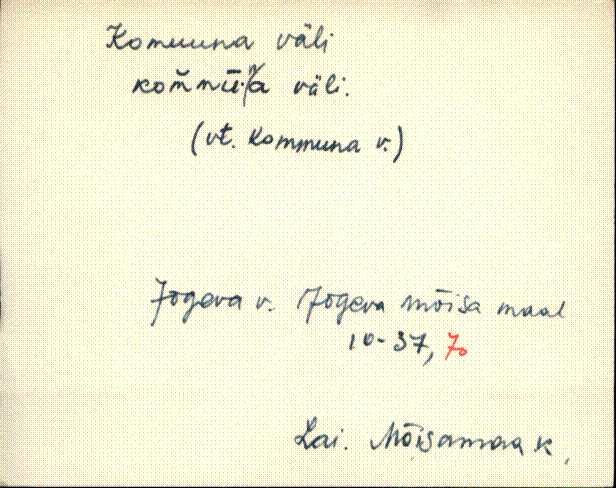 Kommuna väli
kom̆mū̆na väli.
(vt. Kommuna v.)
Jõgeva v. Jõgeva mõisa maal
10-37, 70
Lai. Mõisamaa k,